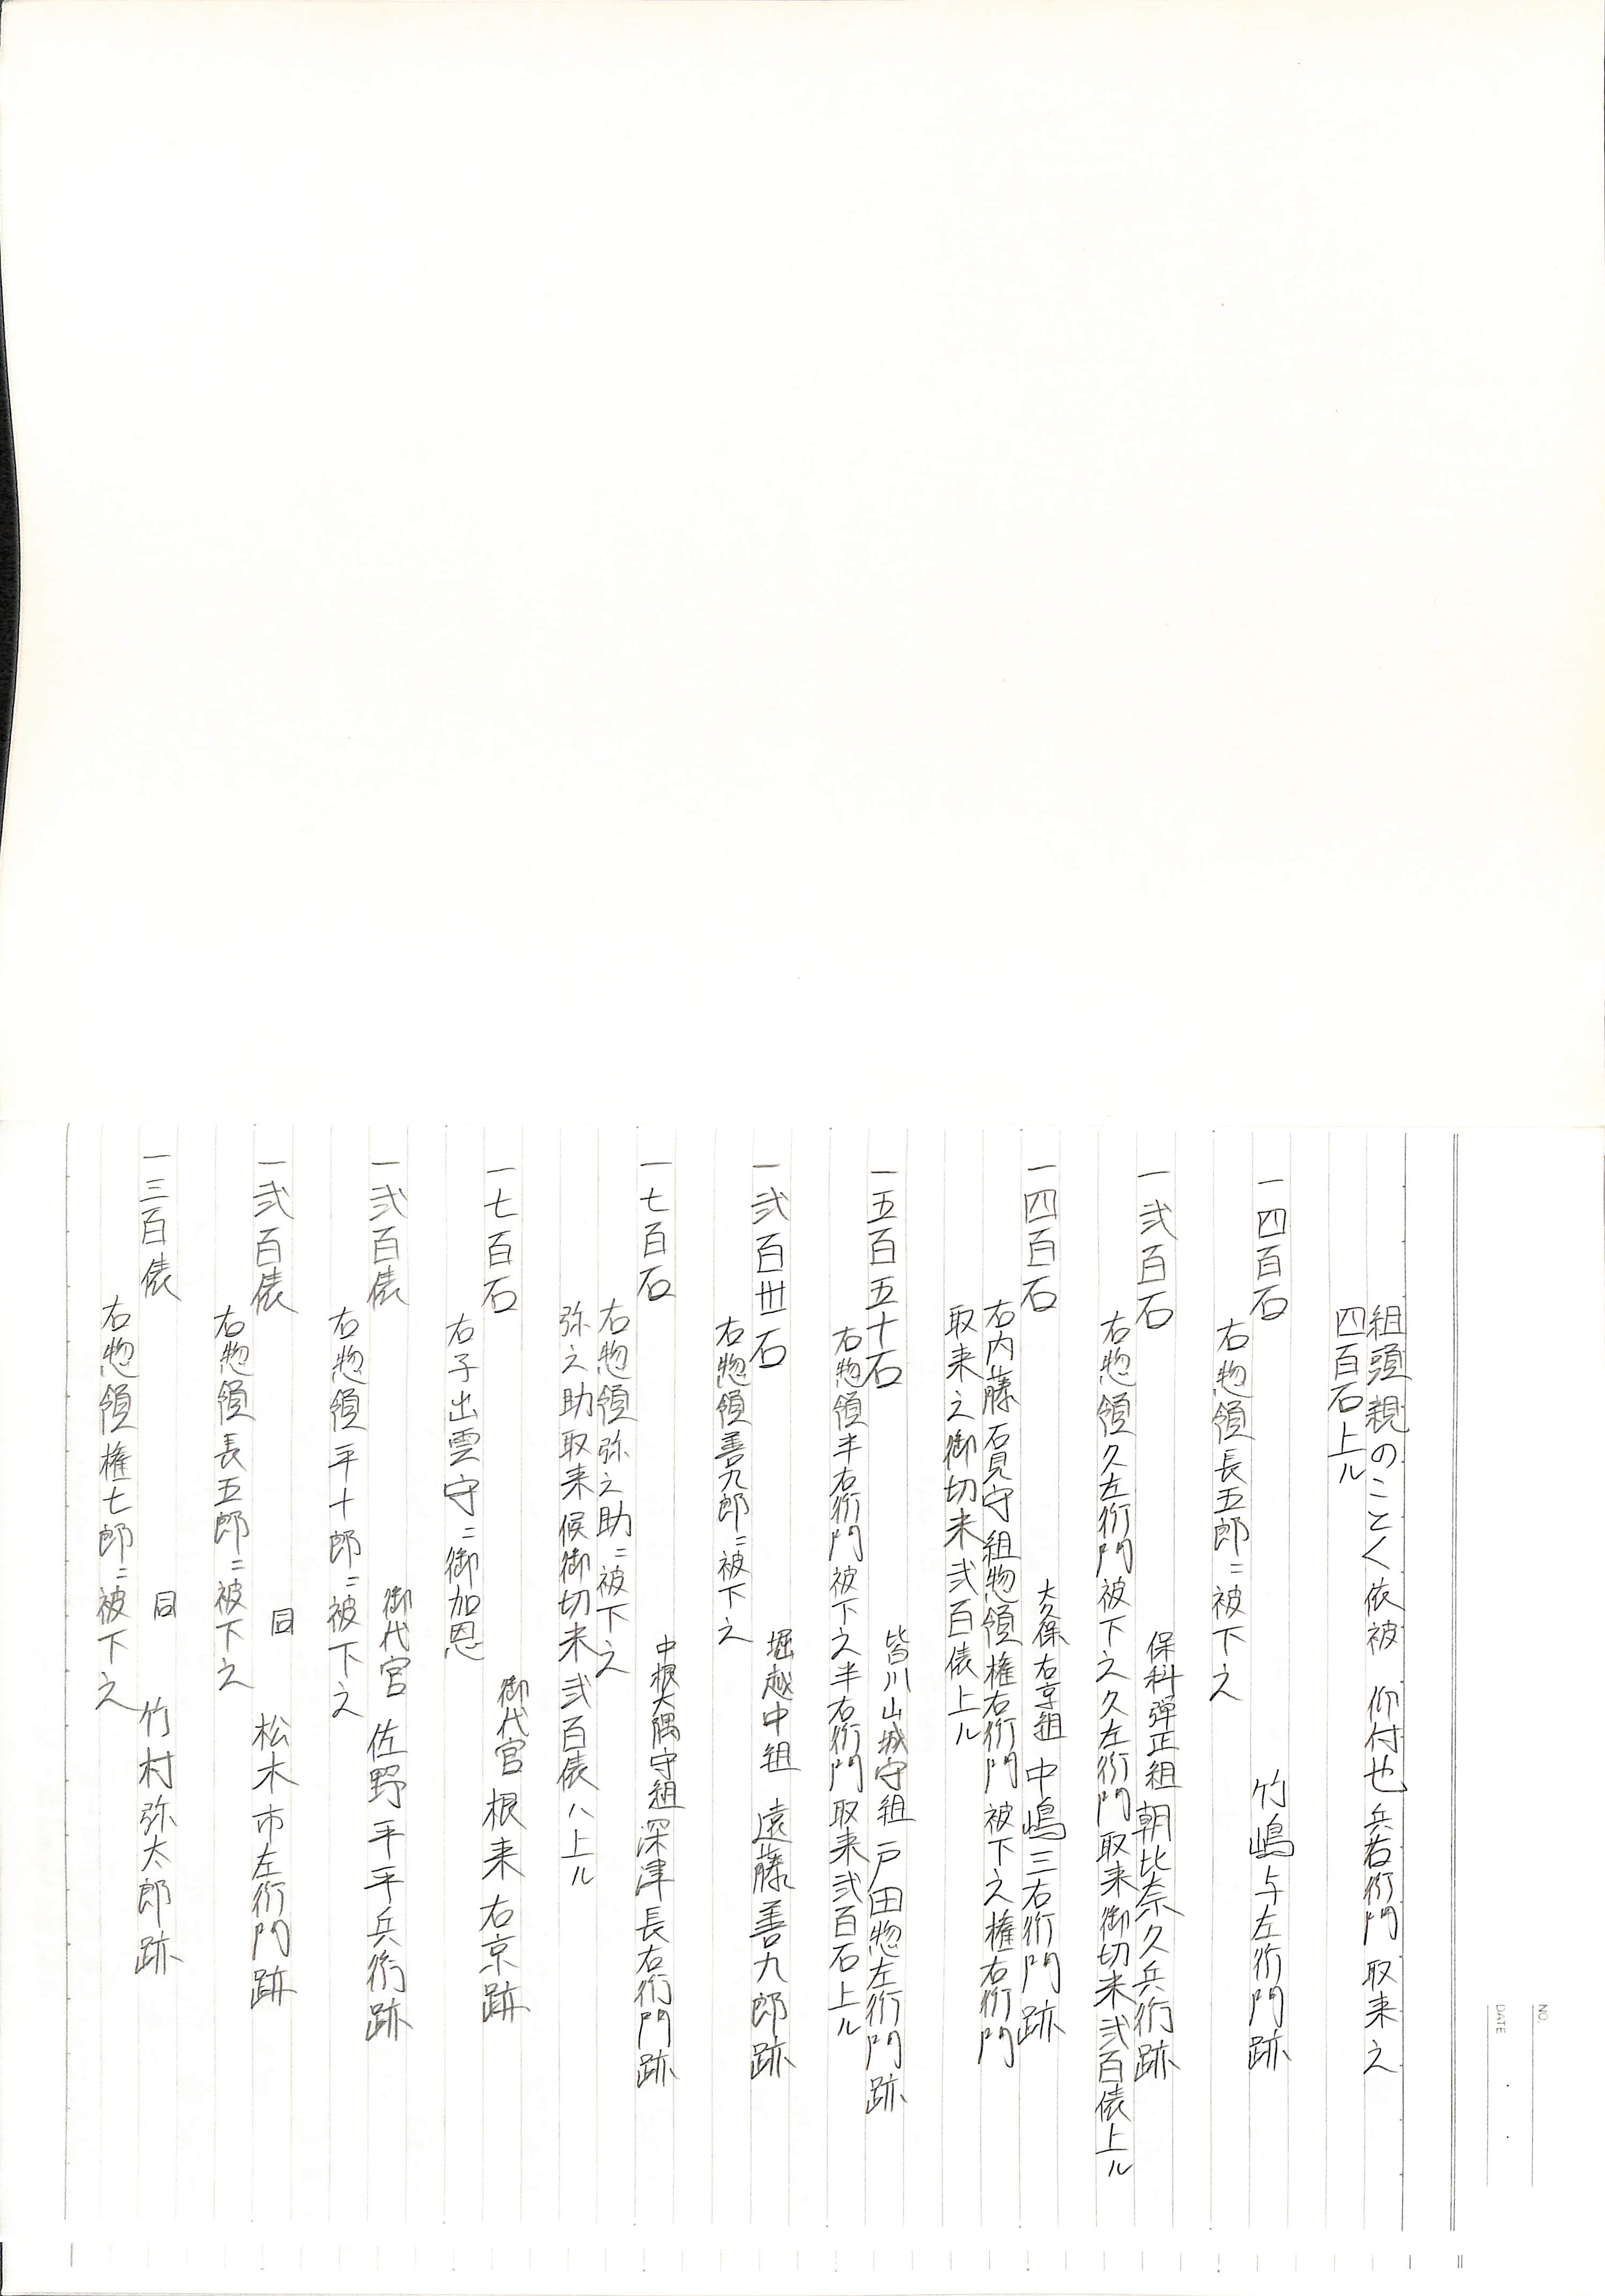 組頭親のことく依被　仰付也兵右衛門取来之
四百石上ル
一四百石　竹嶋与左衛門跡
右惣領長五郎ニ被下之
一弐百石　保科弾正組　朝比奈久兵衛跡
右惣領久左衛門被下之久左衛門取来御切米弐百俵上ル
一四百石　大久保右京組　中嶋三右衛門跡
右内藤石見守組惣領権右衛門被下之権右衛門
取来之御切米弐百俵上ル
一五百五十石　皆川山城守組　戸田惣左衛門跡
右惣領半右衛門被下之半右衛門取来弐百石上ル
一弐百卅石　堀越中組　遠藤善九郎跡
右惣領善九郎ニ被下之
一七百石　中根大隅守組　深津長右衛門跡
右惣領弥之助ニ被下之
弥之助取来候御切米弐百俵ハ上ル
一七百石　御代官　根来右京跡
右子出雲守ニ御加恩
一弐百俵　御代官　佐野平兵衛跡
右惣領平十郎ニ被下之
一弐百俵　同　松木市左衛門跡
右惣領長五郎ニ被下之
一三百俵　同　竹村弥太郎跡
右惣領権七郎ニ被下之
NO.
DATE